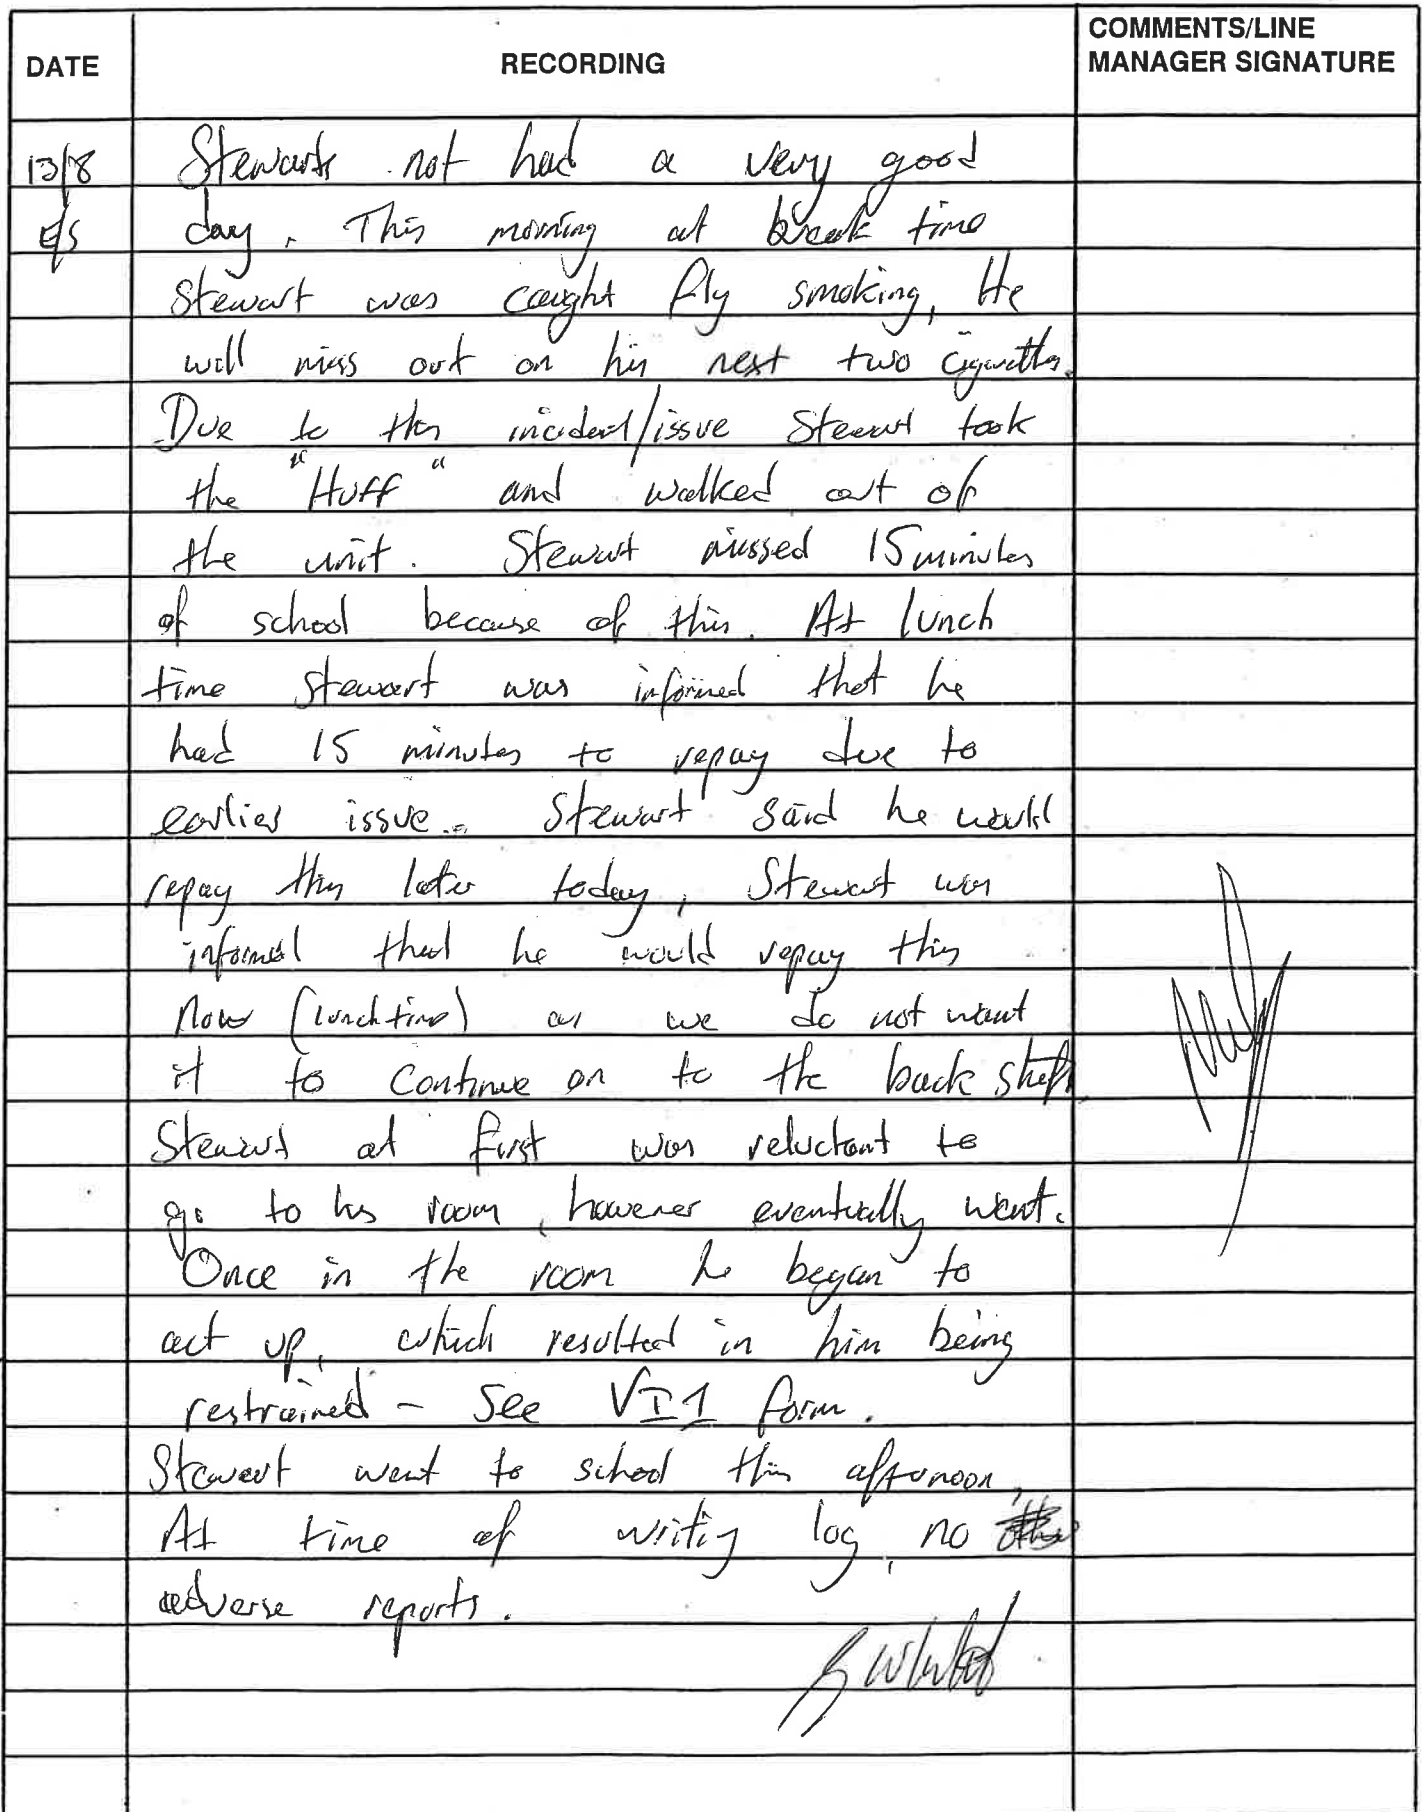 DATE
RECORDING
COMMENTS/LINE
MANAGER SIGNATURE
13/8 Stewarts not had a very good
E/S day. This morning at break time
Stewart was caught fly smoking, He
will miss out on his next two cigarettes.
Due to this incident/issue Stewart took
the "Huff" and walked out of
the unit. Stewart missed 15 minutes
of school because of this. At lunch
time Stewart was informed that he
had 15 minutes to repay due to
earlier issue. Stewart said he would
repay this later today, Stewart was
informed that he would repay this
now (lunch time) as we do not want
it to continue on to the back shift.
Stewart at first was reluctant to
go to his room, however eventually went.
Once in the room he began to
act up, which resulted in him being
restrained - See VI1 form.
Stewart went to school this afternoon,
At time of writing log, no
adverse reports.